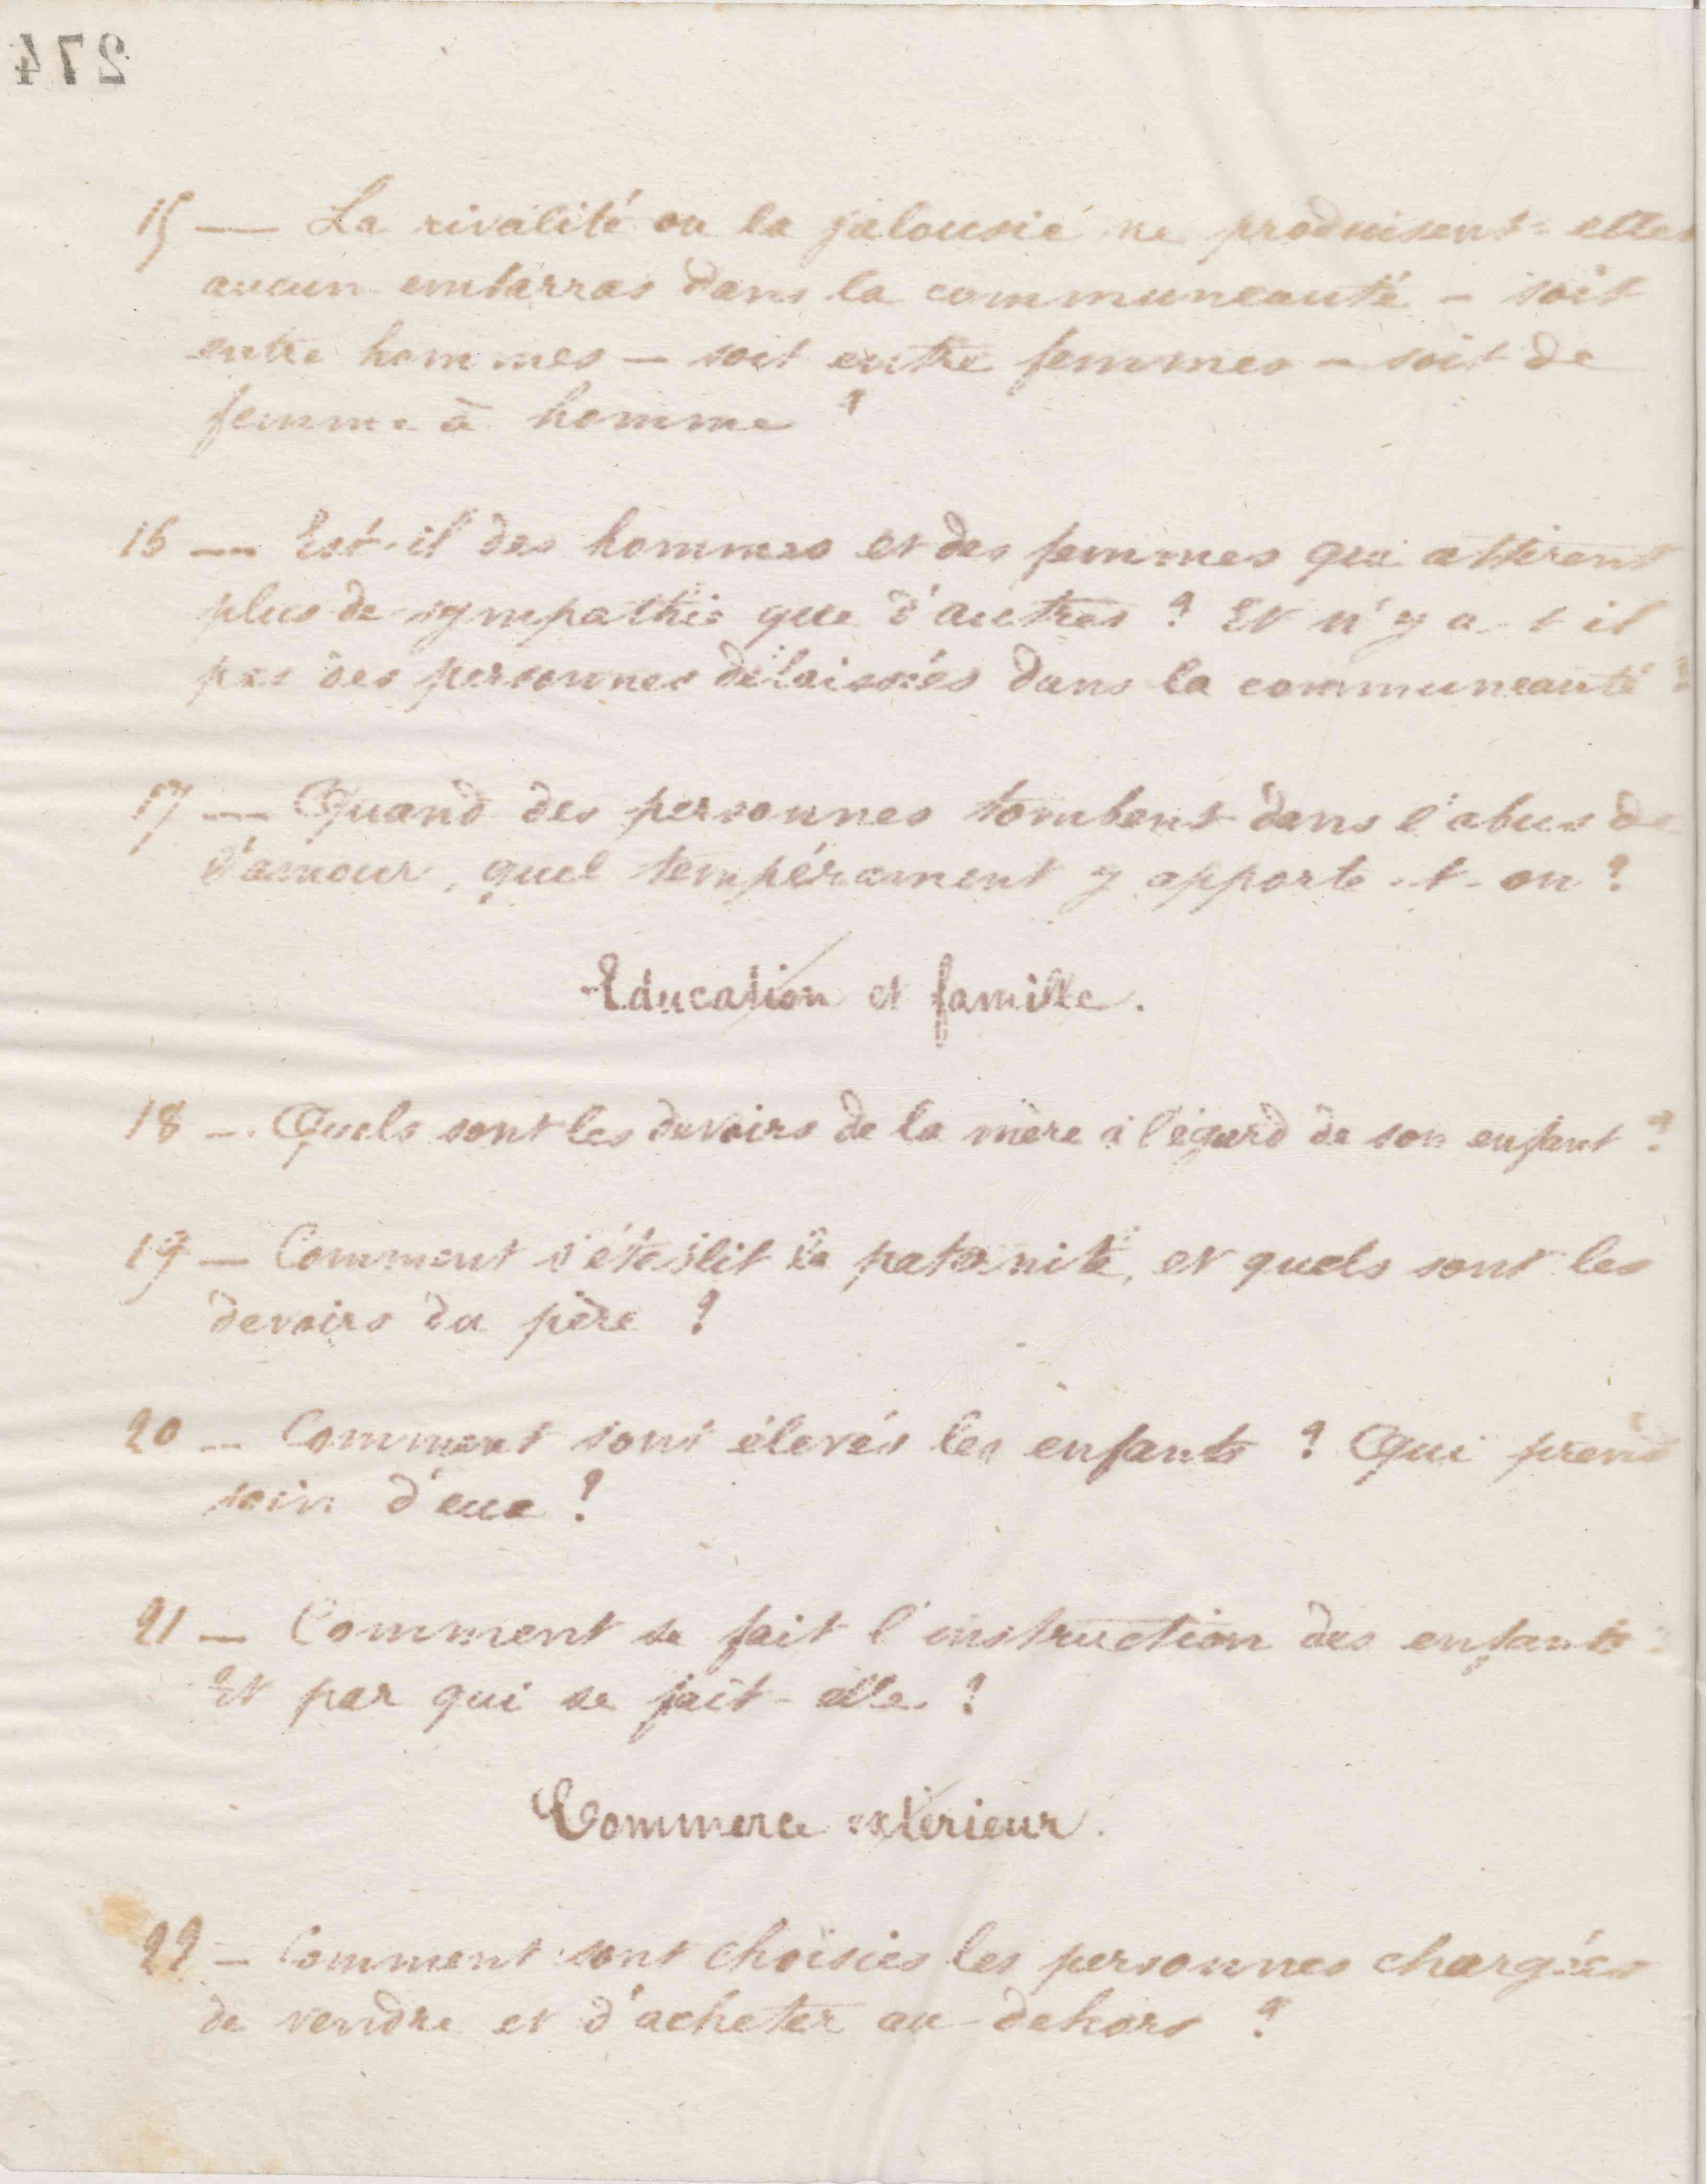 274
15 — La rivalité ou la jalousie ne produisent-elles
aucun embarras dans la communeauté - soit
entre hommes — soit entre femmes - soit de
femme à homme ?
16 — Est-il des hommes et des femmes qui attirent
plus de sympathie que d'autres ? Et n'y a-t-il
pas des personnes délaissées dans la communeauté ?
17 — Quand des personnes tombent dans l'abus de
l'amour, quel tempérament y apporte-t-on ?
Education et famille.
18 - Quels sont les devoirs de la mère à l'égard de son enfant ?
19 — Comment s'établit la paternité, et quels sont les
devoirs du père ?
20 - Comment sont élevés les enfants ? Qui prend
soin d'eux ?
21 — Comment se fait l'instruction des enfants ?
Et par qui se fait-elle ?
Commerce extérieur.
22 — Comment sont choisies les personnes chargées
de vendre et d'acheter au-dehors ?